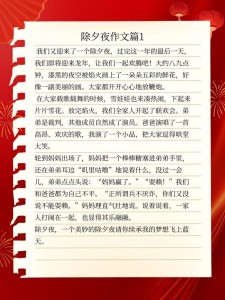 除夕夜作文篇1
我们又迎来了一个除夕夜，过完这一年的最后一天，
我们即将迎来龙年，让我们一起欢腾吧！大约八九点
钟，漆黑的夜空被焰火画上了一朵朵五彩的鲜花，好
像一副美丽的画。大家都开开心心地放鞭炮。
在大家载歌载舞的时候，雪娃娃也来凑热闹，下起来
片片雪花。放完焰火，我们全家人开起了联欢会。弟
弟是裁判，其他成员自然成了演员。爸爸演唱了一首
高昂、欢庆的歌，我演了一个小品，把大家逗得哄堂
大笑。
轮到妈妈出场了，妈妈把一个棒棒糖塞进弟弟手里，
还在弟弟耳边“叽里咕噜”地说着什么。没过一会
儿，弟弟点点头说：“妈妈赢了。”“耍赖！”我们
和爸爸都为自己不平。“正所谓兵不厌诈，你们又没
说不能耍赖。”妈妈理直气壮地说。说着说着，一家
人打闹在一起，也显得其乐融融。
除夕夜，一个美妙的除夕夜请你续承我的梦想飞上蓝
天。